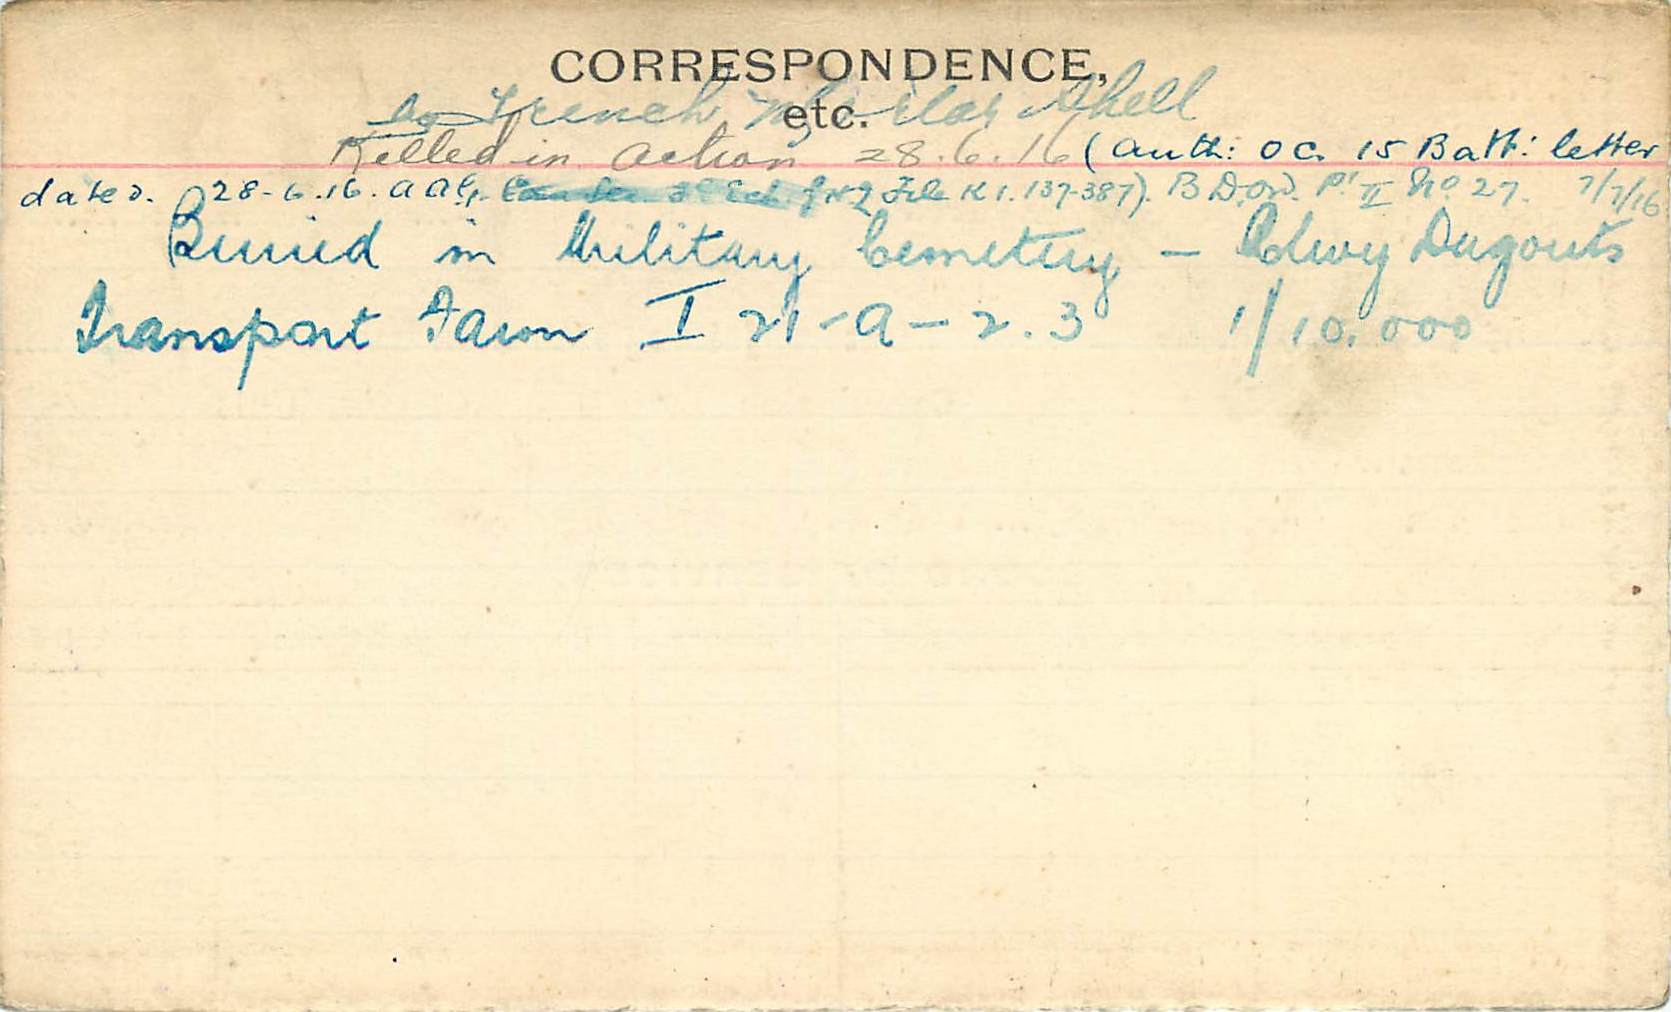 CORRESPONDENCE,
etc.
by Trench Mortar Shell
Killed in action 28.6.16 (Auth: OC. 15 Batt: letter
dated. 28-6-16. A A G, File K1.137-387). B D.O.W. Pt II No 27. 7/7/16
Buried in Military Cemetery – Rlwy Dugouts
Transport Farm I 21-a-2.3 1/10.000